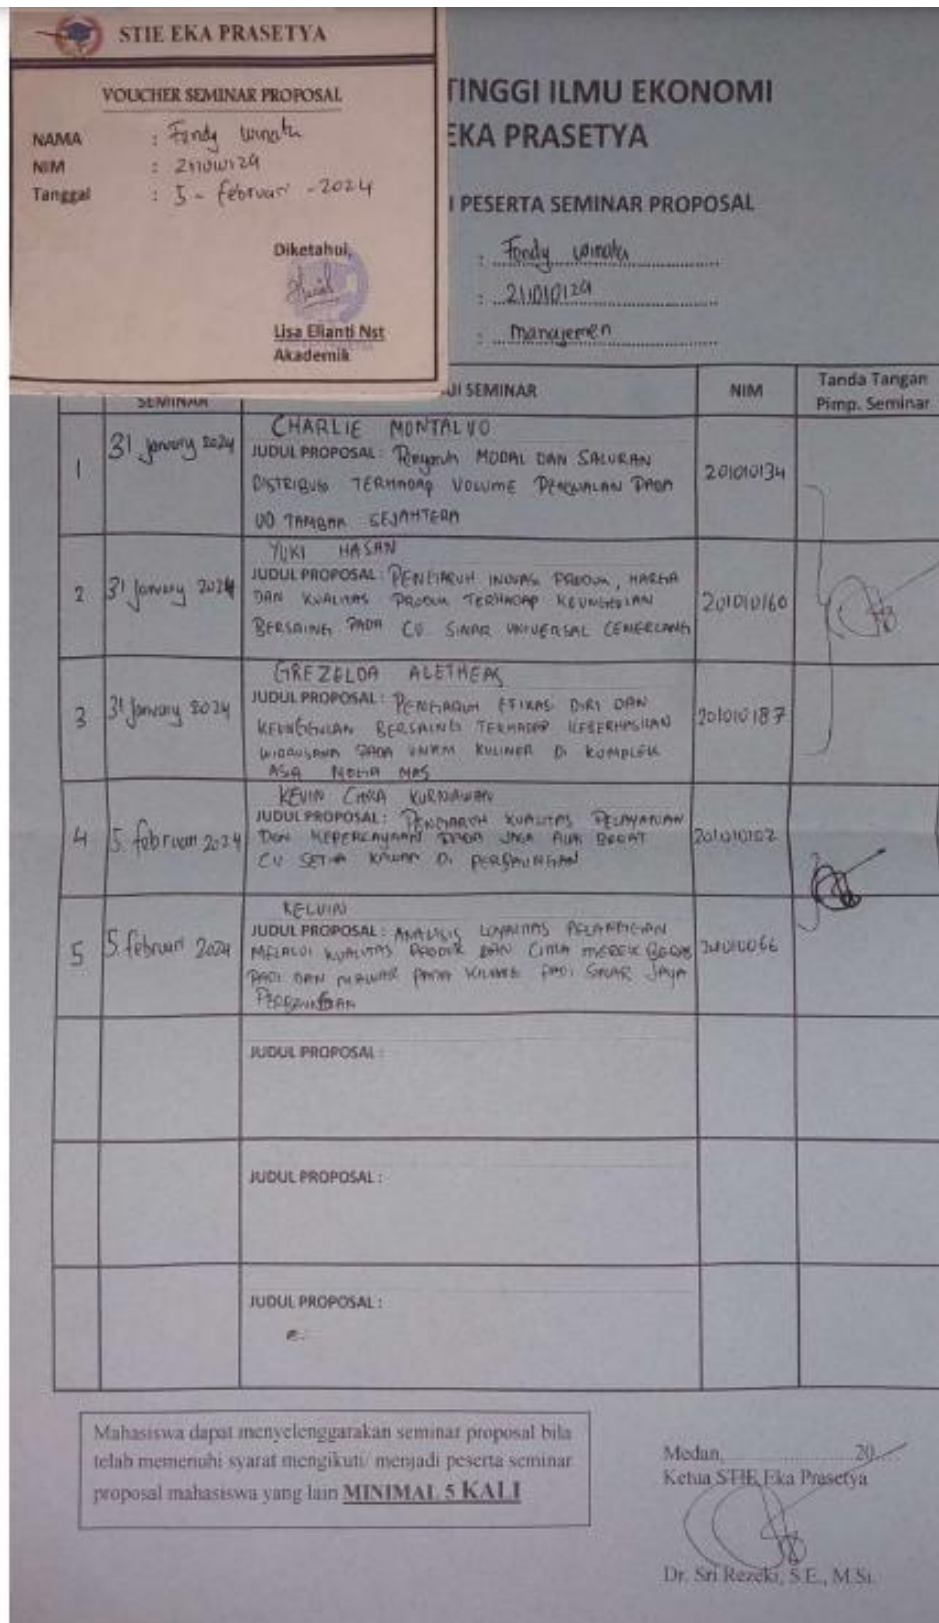 STIE EKA PRASETYA
VOUCHER SEMINAR PROPOSAL
NAMA : Fendy winata
NIM : 211010129
Tanggal : 5 - februari - 2024
Diketahui,
Lisa Elianti Nst
Akademik
TINGGI ILMU EKONOMI
EKA PRASETYA
I PESERTA SEMINAR PROPOSAL
: Fendy winata
: 211010129
: manajemen
SEMINAR JI SEMINAR NIM Tanda Tangan
Pimp. Seminar
CHARLIE MONTALVO
1 31 january 2024 JUDUL PROPOSAL : Pengaruh MODAL DAN SALURAN 201010134
DISTRIBUSI TERHADAP VOLUME PENJUALAN PADA
UD TAMBAK SEJAHTERA
YUKI HASAN
2 31 january 2024 JUDUL PROPOSAL : PENGARUH INOVASI PRODUK, HARGA 201010160
DAN KUALITAS PRODUK TERHADAP KEUNGGULAN
BERSAING PADA CV SINAR UNIVERSAL CEMERLANG
GREZELDA ALETHEAS
3 31 january 2024 JUDUL PROPOSAL : PENGARUH EFIKASI DIRI DAN 201010187
KEUNGGULAN BERSAING TERHADAP KEBERHASILAN
WIRAUSAHA PADA UMKM KULINER DI KOMPLEK
ASIA MEGA MAS
KEVIN CITRA KURNIAWAN
4 5 februari 2024 JUDUL PROPOSAL : PENGARUH KUALITAS PELAYANAN 201010102
DAN KEPERCAYAAN PADA JASA ALAT BERAT
CV SETIA KAWAN DI PERBAUNGAN
KELVIN
5 5 februari 2024 JUDUL PROPOSAL : ANALISIS LOYALITAS PELANGGAN
MELALUI KUALITAS PRODUK DAN CITRA MEREK BERAS
PADI DAN MAWAR PADA KILANG PADI SINAR JAYA
PERBAUNGAN
JUDUL PROPOSAL :
JUDUL PROPOSAL :
JUDUL PROPOSAL :
Mahasiswa dapat menyelenggarakan seminar proposal bila
telah memenuhi syarat mengikuti/ menjadi peserta seminar
proposal mahasiswa yang lain MINIMAL 5 KALI
Medan, 20
Ketua STIE Eka Prasetya
Dr. Sri Rezeki, S.E., M.Si.